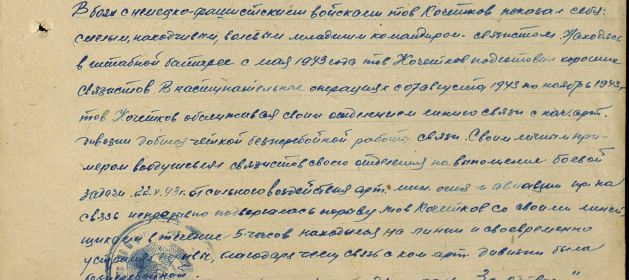 В боях с немецко-фашистскими войсками тов Кочетков показал себя:
смелым, находчивым, волевым младшим командиром-связистом. Находясь
в штабной батарее с мая 1943 года тов Кочетков подготовил хороших
связистов. В наступательных операциях с 07 августа 1943 по ноябрь 1943 г.
тов Кочетков обслуживая своим отделением линию связи с нач. арт.
дивизии добился четкой бесперебойной работы связи. Своим личным при-
мером воодушевлял связистов своего отделения на выполнение боевой
задачи. 22.X.43г. от сильного воздействия арт. мин. огня и авиации пр-ка
связь непрерывно подвергалась порыву тов Кочетков со своими линей-
щиками в течение 5 часов находился на линии и своевременно
устранял порывы, благодаря чему связь с ком. арт. дивизии была
бесперебойной